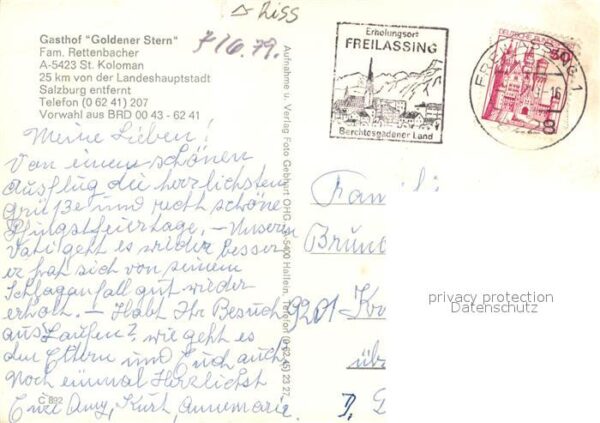 Riss
7/6.79.
Gasthof "Goldener Stern"
Fam. Rettenbacher
A-5423 St. Koloman
25 km von der Landeshauptstadt
Salzburg entfernt
Telefon (0 62 41) 207
Vorwahl aus BRD 00 43 - 62 41
Meine Lieben!
Von einem schönen
Ausflug die herzlichsten
Grüße und recht schöne
Pfingstfeiertage. — Unseren
Vati geht es wieder besser
er hat sich von seinem
Schlaganfall gut wieder
erholt. — Habt Ihr Besuch
aus Laufen? wie geht es
den Eltern und Euch auch
Noch einmal Herzlichst
Eure Amy, Kurt, Annemarie.
C 892
Aufnahme u. Verlag Foto Gebhart OHG, A-5400 Hallein, Telefon (0 62 45) 23 27
Erholungsort
FREILASSING
Berchtesgadener Land
FREILASSING 1
DEUTSCHE
-16
8228
Fam
Brun
9201
üb
D,
privacy protection
Datenschutz